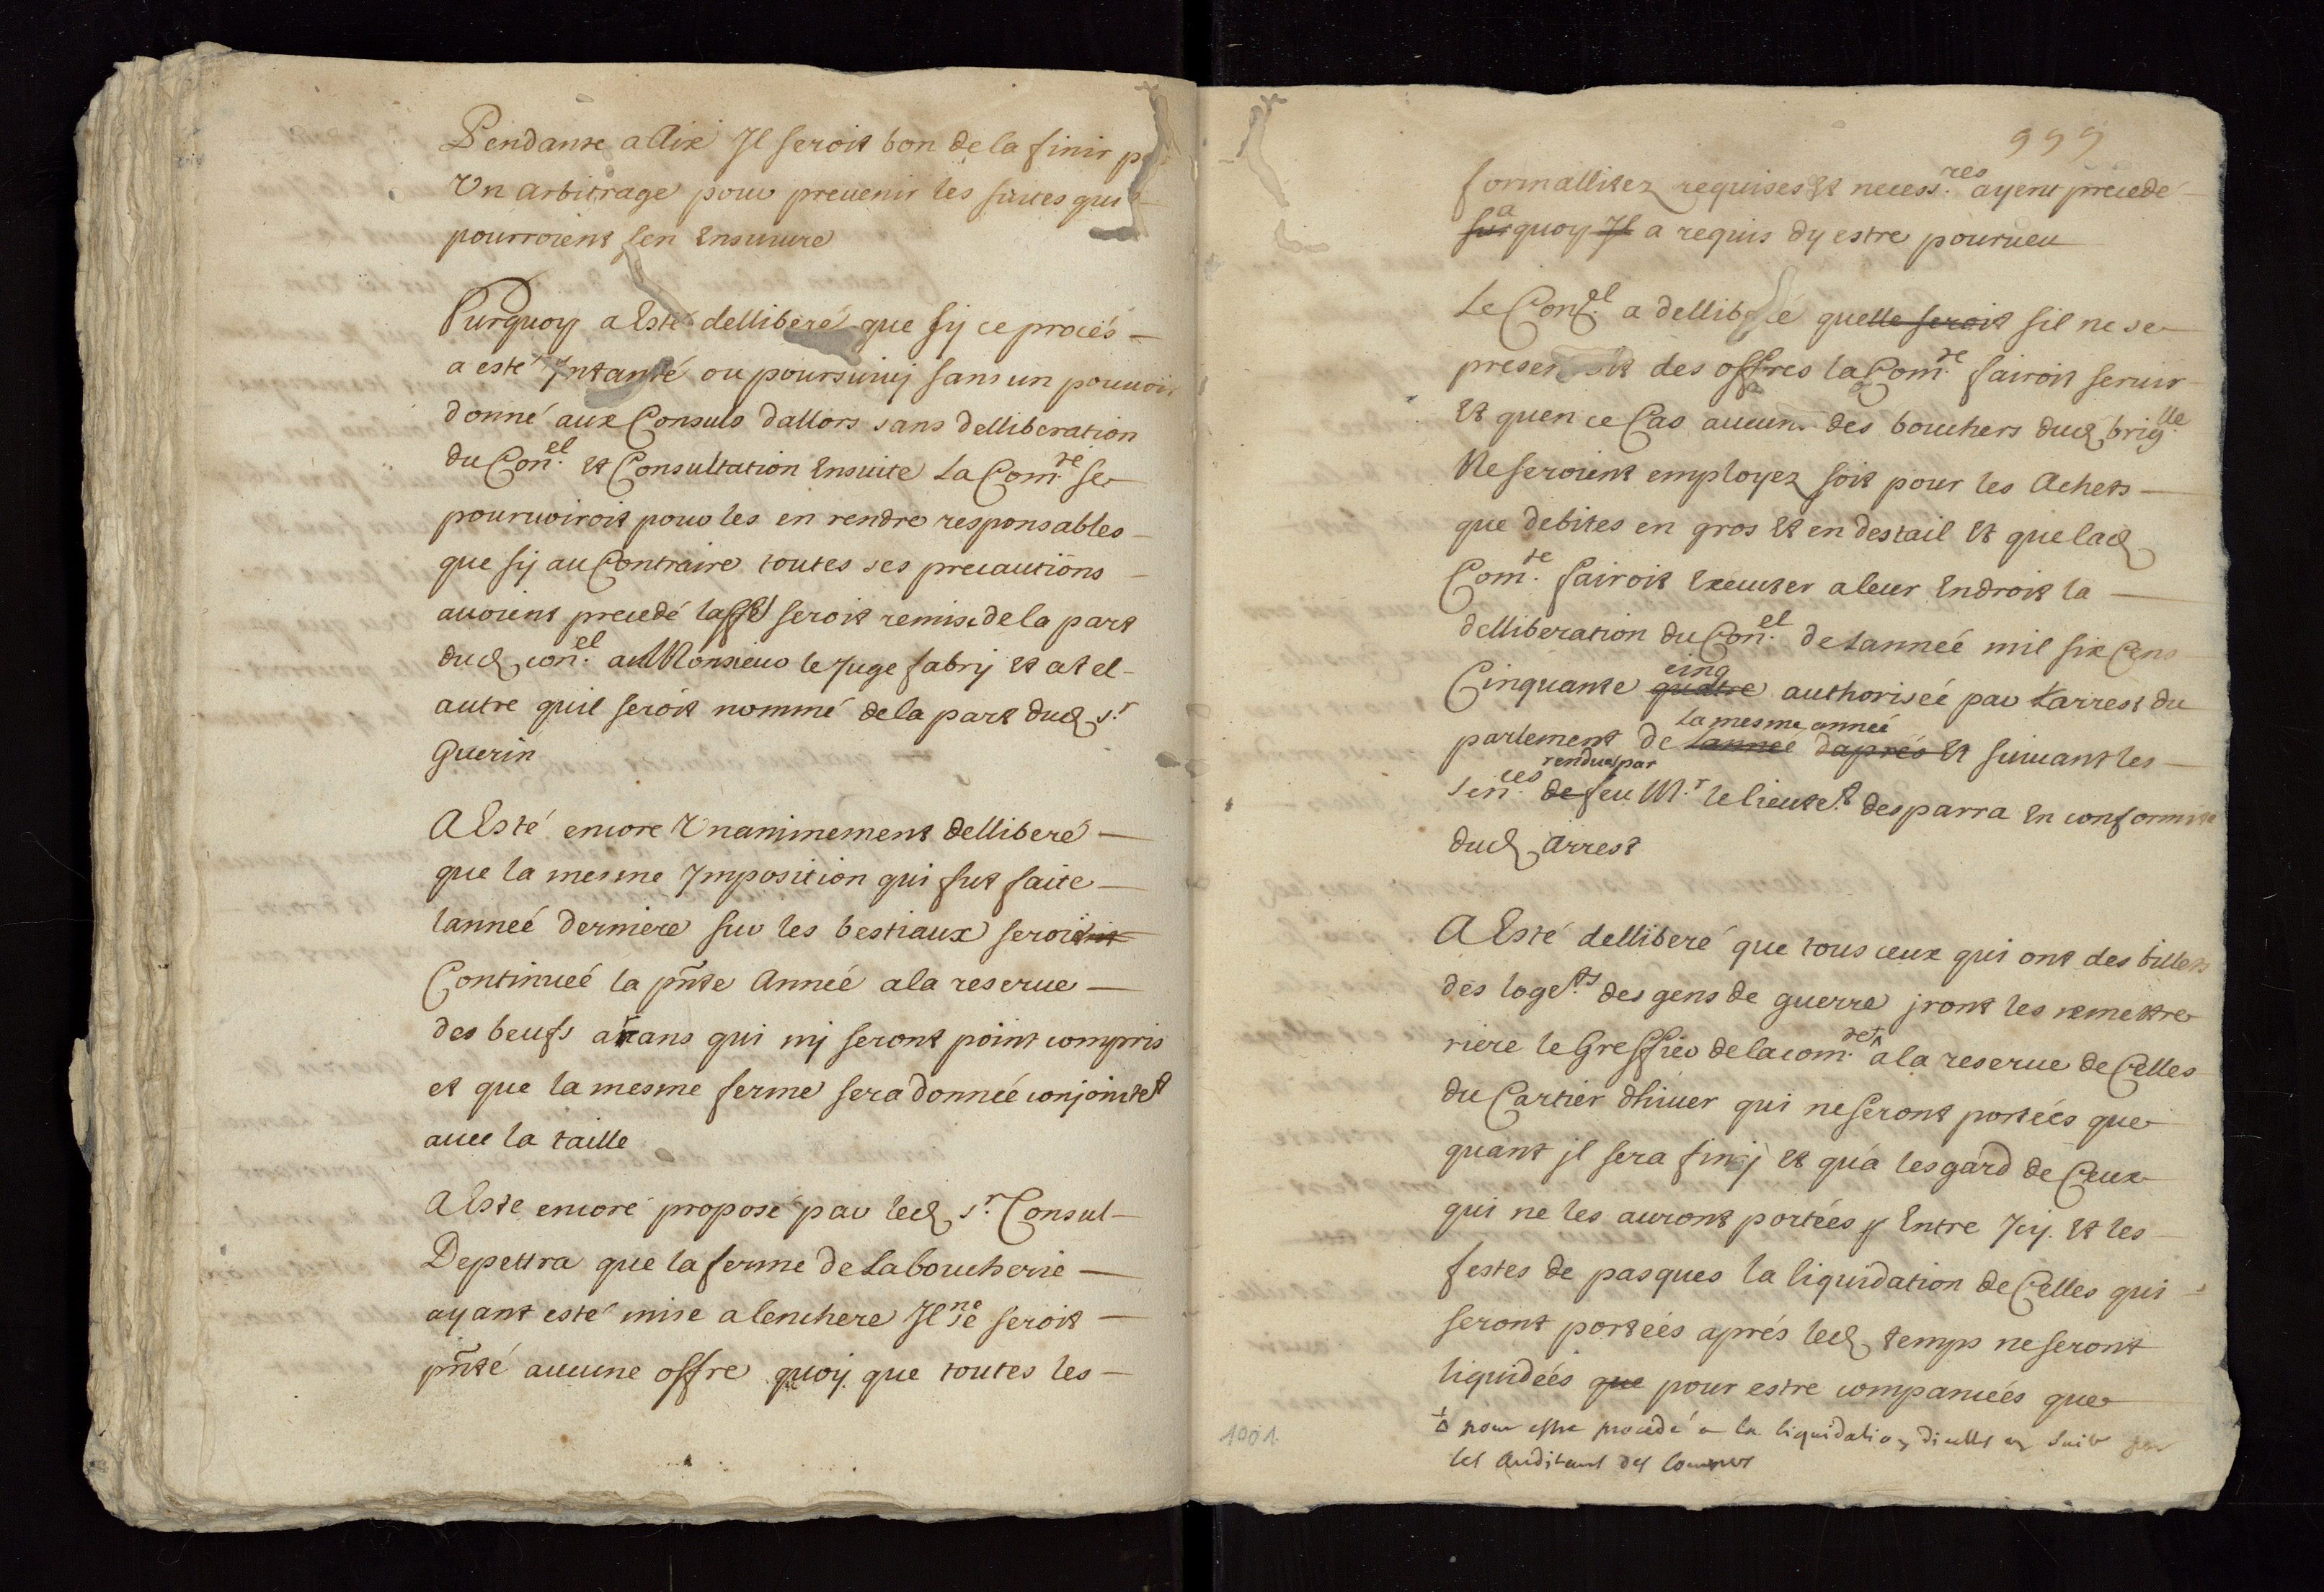 Pendante a Aix Il seroit bon de la finir
Un arbitrage pour prevenir les suites qui
pourroient sen Ensuivre
Surquoy a Esté delliberé que sy ce procés
a esté Intanté ou poursuivy sans un pouvoir
donné aux Consuls dallors sans delliberation
du Con.el Et Consultation Ensuite La Com.te se
pourvoiroit pour les en rendre responsables
que sy au Contraire toutes ses precautions
avoient precedé seroit remise de la part
dud con.el a Monsieur le Juge fabry Et a tel
autre quil seroit nommé de la part dud s.r
Guerin
A Esté encore Unanimement delliberé
que la mesme Imposition qui fut faite
lanneé derniere sur les bestiaux seroit
Continueé la pñte Anneé a la reserve
des beufs arans qui ny seront point compris
et que la mesme ferme sera donneé conjointet
avec la taille
A Este encore proposé par led s.r Consul
Depettra que la ferme de La boucherie
ayant esté mise a lenchere Il ne se seroit
pñté aucune offre quoy que toutes les
999
formallitez requises Et necess.res ayent precedé
sur a quoy Il a requis dy estre pourveu
Le Con.el a delliberé quelle seroit sil ne se
presentoit des offres la Com.te fairoit servir
Et quen ce Cas aucun des bouchers dud brig.lle
Ne seroient employez soit pour les Achets
que debites en gros Et en destail Et que lad
Com.te fairoit Executer a leur Endroit la
delliberation du Con.el de Lanneé mil six Cens
Cinquante quattre cinq authoriseé par Larrest du
parlement de Lanneé daprés Et la mesme anneé suivant les
sen.ces de rendues par feu M.r le lieute.t desparra En conformite
dud Arrest
A Esté delliberé que tous ceux qui ont des billets
des loge.ts des gens de guerre jront les remettre
riere le Greffier de la com.te + a la reserve de Celles
du Cartier dhiver qui ne seront porteés que
quant jl sera finy Et qua lesgard de Ceux
qui ne les auront porteés Entre Icy Et les
festes de pasques la liquidation de Celles qui
seront porteés aprés led temps ne seront
liquideés que pour estre companceés que
+ pour estre procedé a la liquidation dicelles en suite par
les Auditeurs des Comptes
1001